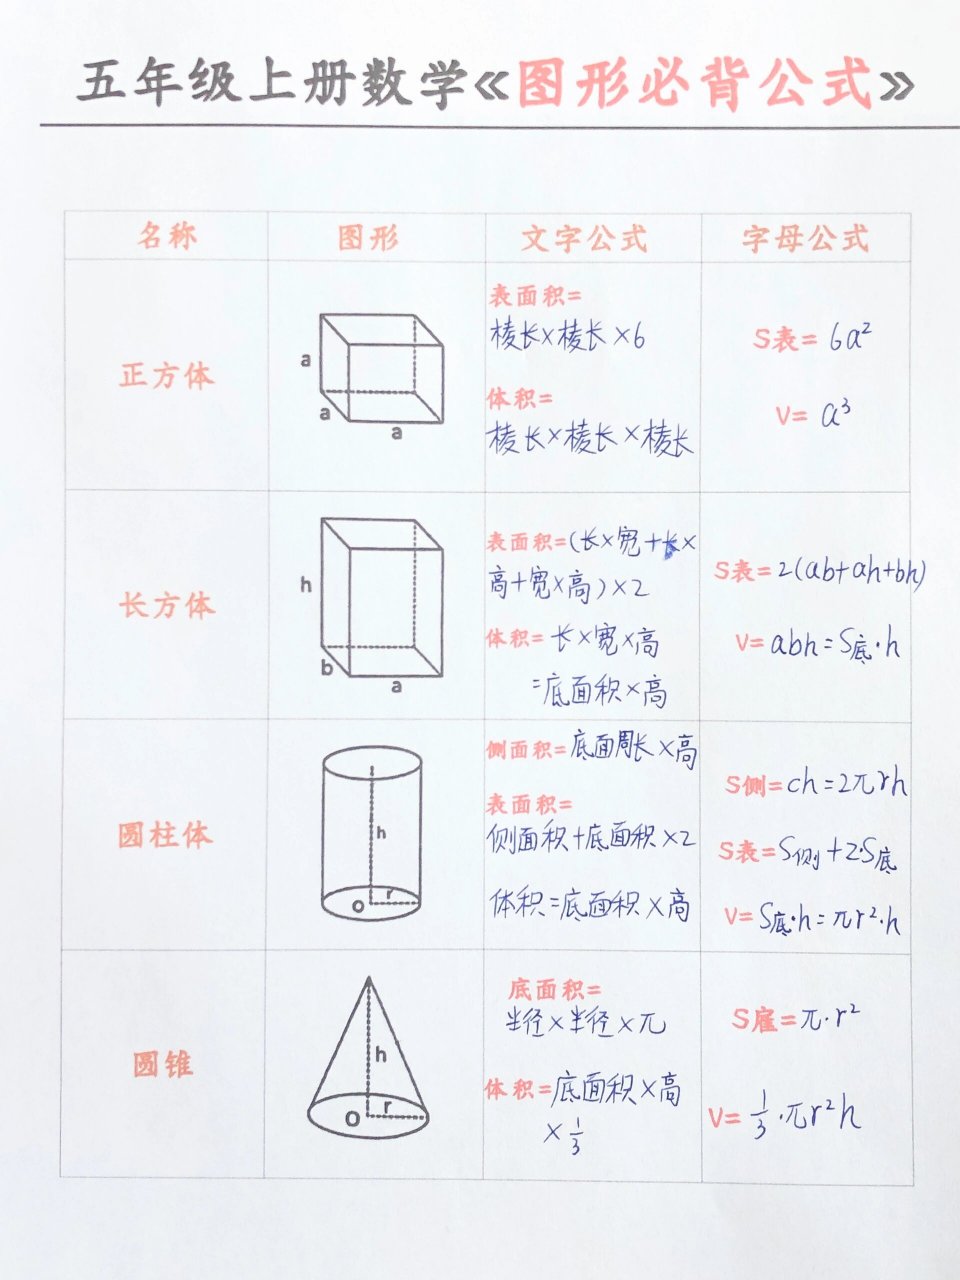 五年级上册数学《图形必背公式》
名称 图形 文字公式 字母公式
正方体
a
a
a
表面积=
棱长×棱长×6
体积=
棱长×棱长×棱长
S表= 6a²
V= a³
长方体
h
b
a
表面积=(长×宽+长×
高+宽×高)×2
体积= 长×宽×高
=底面积×高
S表=2(ab+ah+bh)
V= abh=S底·h
圆柱体
h
r
O
侧面积=底面周长×高
表面积=
侧面积+底面积×2
体积=底面积×高
S侧=ch=2πrh
S表=S侧+2·S底
V=S底·h=πr²·h
圆锥
h
r
O
底面积=
半径×半径×π
体积=底面积×高
×1/3
S雇=π·r²
V=1/3·πr²h